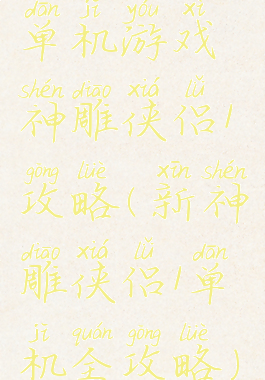 dān jī yóu xì
单机游戏
shén diāo xiá lǚ
神雕侠侣1
gōng lüè xīn shén
攻略(新神
diāo xiá lǚ dān
雕侠侣1单
jī quán gōng lüè
机全攻略)